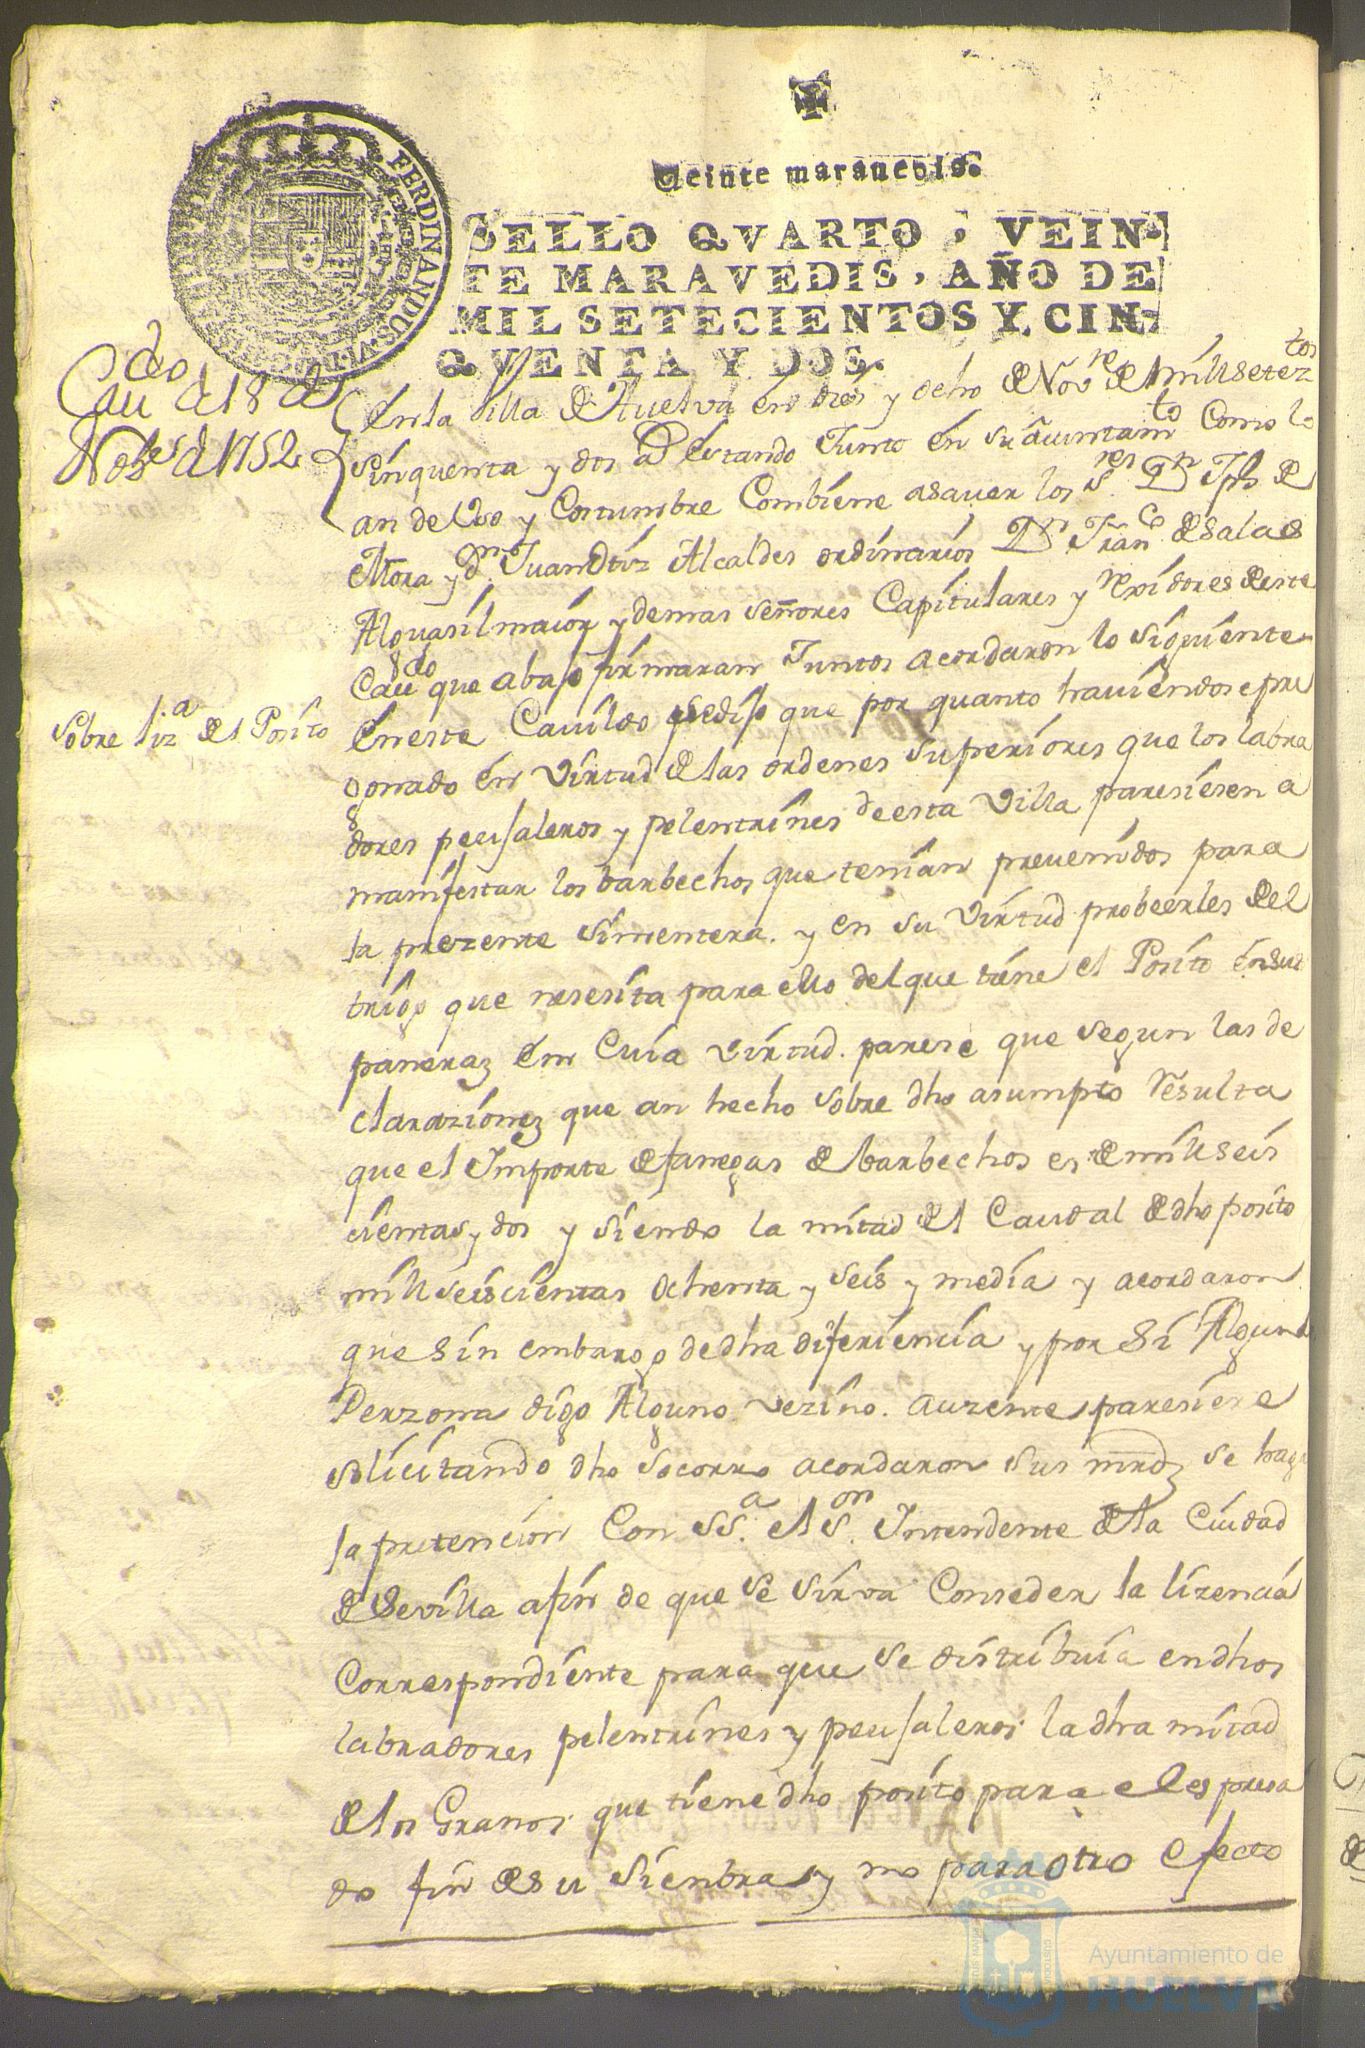 Veinte maravedis.
SELLO QVARTO, VEIN-
TE MARAVEDIS, AÑO DE
MIL SETECIENTOS Y CIN-
QVENTA Y DOS.
FERDINANDUS VI
Cavdo del 18 de
Nobre de 1752
En la Villa de Huelva en dies y ocho de Novre de mill seteztos
sinquenta y dos as Estando Junto en su aiuntamto Como lo
an de Uso y Costumbre Combiene asaver los Sres Dn Jph de
Mora y Dn Juan Ortiz Alcaldes ordinarios Dn Franco de Salas
Alguasil maior y demas señores Capitulares y rexidores de este
Cavdo que abajo firmaran Juntos acordaron lo siguiente
Sobre liza del Posito
En este Cavildo se dijo que por quanto haviendose pre
gonado en Virtud de las ordenes superiores que los labra
dores peujaleros y pelentrines de esta Villa paresiesen a
manifestar los barbechos que tenian prevenidos para
la prezente simentera. y en su Virtud probeerles del
trigo que nesesita para ello del que tiene el Posito en sus
paneraz en Cuia virtud. parese que segun las de
claraziones que an hecho sobre dho asumpto resulta
que el Importe de fanegas de barbechos es de mill seis
cientas y dos y siendo la mitad del Caudal de dho posito
mill seiscientas ochenta y seis y media y acordaron
que sin embargo de dha diferiencia y por si Alguna
Perzona digo Alguno vezino. auzente paresiere
solicitando dho socorro acordaron sus mrdz se haga
la pretencion Con SSa el Sor Intendente de la Ciudad
de Sevilla afin de que se sirva Conseder la lizencia
Correspondiente para que se distribuia en dhos
labradores pelentrines y peujaleros la dha mitad
de los Granos que tiene dho posito para el espresa
do fin de su siembra y no para otro efecto
Ayuntamiento de
HUELVA